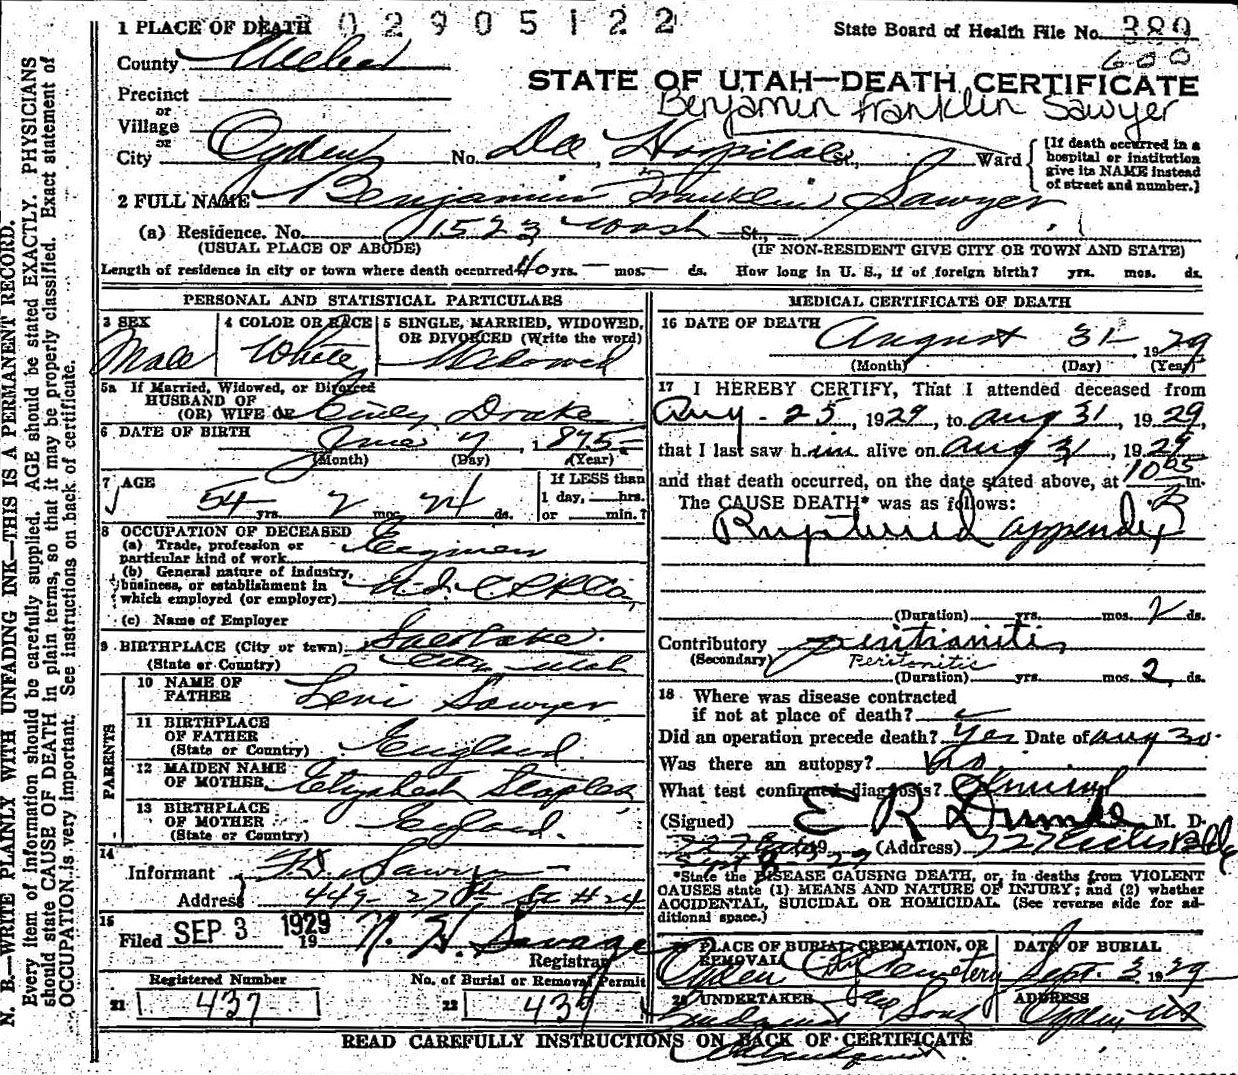 02905122
1 PLACE OF DEATH
State Board of Health File No. 389
600
County Weber
STATE OF UTAH—DEATH CERTIFICATE
Precinct
Benjamin Franklin Sawyer
or
Village
or
City Ogden No. Dee Hospital St., Ward
[If death occurred in a hospital or institution give its NAME instead of street and number.]
2 FULL NAME Benjamin Franklin Sawyer
(a) Residence. No. 1523 Wash St.,
(USUAL PLACE OF ABODE) (IF NON-RESIDENT GIVE CITY OR TOWN AND STATE)
Length of residence in city or town where death occurred 40 yrs. — mos. — ds. How long in U. S., if of foreign birth? yrs. mos. ds.
PERSONAL AND STATISTICAL PARTICULARS
3 SEX
Male
4 COLOR OR RACE
White
5 SINGLE, MARRIED, WIDOWED, OR DIVORCED (Write the word)
Widowed
5a If Married, Widowed, or Divorced
HUSBAND OF
(OR) WIFE OF Drake
6 DATE OF BIRTH June 7, 1875
(Month) (Day) (Year)
7 AGE
54 yrs. 2 mos. 24 ds.
If LESS than
1 day, hrs.
or min.?
8 OCCUPATION OF DECEASED
(a) Trade, profession or
particular kind of work
(b) General nature of industry,
business, or establishment in
which employed (or employer)
(c) Name of Employer
9 BIRTHPLACE (City or town) Salt Lake
(State or Country) City Utah
PARENTS
10 NAME OF
FATHER Levi Sawyer
11 BIRTHPLACE
OF FATHER
(State or Country) England
12 MAIDEN NAME
OF MOTHER Elizabeth Staples
13 BIRTHPLACE
OF MOTHER
(State or Country) England.
14
Informant Sawyer
Address 449-27th St #24
15
Filed SEP 3 1929 N. H. Savage
19
Registrar
Registered Number
21 437
No. of Burial or Removal Permit
22 437
MEDICAL CERTIFICATE OF DEATH
16 DATE OF DEATH
August 31 1929
(Month) (Day) (Year)
17 I HEREBY CERTIFY, That I attended deceased from
Aug. 25, 1929, to Aug 31, 1929,
that I last saw him alive on Aug 31, 1929
and that death occurred, on the date stated above, at 10 05 m.
The CAUSE DEATH* was as follows:
Ruptured appendix
(Duration) yrs. mos. 2 ds.
Contributory peritianitis
(Secondary) Peritonitis
(Duration) yrs. mos. 2 ds.
18 Where was disease contracted
if not at place of death?
Did an operation precede death? Yes Date of Aug 30.
Was there an autopsy? No.
What test confirmed diagnosis?
(Signed) E R Dumke M. D.
Sept 19 29 (Address) 727 Eccles Bldg
*State the DISEASE CAUSING DEATH, or, in deaths from VIOLENT
CAUSES state (1) MEANS AND NATURE OF INJURY; and (2) whether
ACCIDENTAL, SUICIDAL OR HOMICIDAL. (See reverse side for ad-
ditional space.)
PLACE OF BURIAL, CREMATION, OR
REMOVAL
Ogden City Cemetery
DATE OF BURIAL
Sept. 3 1929
20 UNDERTAKER
Sons
ADDRESS
Ogden Ut
READ CAREFULLY INSTRUCTIONS ON BACK OF CERTIFICATE
N. B.—WRITE PLAINLY WITH UNFADING INK—THIS IS A PERMANENT RECORD.
Every item of information should be carefully supplied. AGE should be stated EXACTLY. PHYSICIANS
should state CAUSE OF DEATH in plain terms, so that it may be properly classified. Exact statement of
OCCUPATION is very important. See instructions on back of certificate.